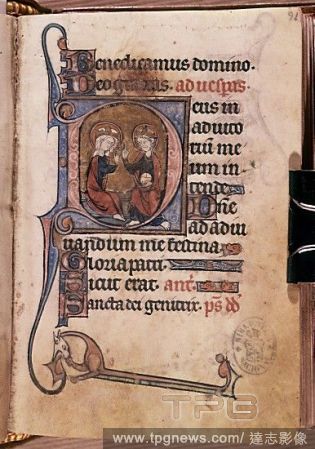 91
Benedicamus domino.
Deo gracias. ad uespas
Deus in
adiuto
rium me
um in
tende.
Dñe
ad adiu
uandum me festina
Gloria patri.
Sicut erat. ant.
Sancta dei genitrix. ps dd
TPG
www.tpgnews.com/ 達志影像